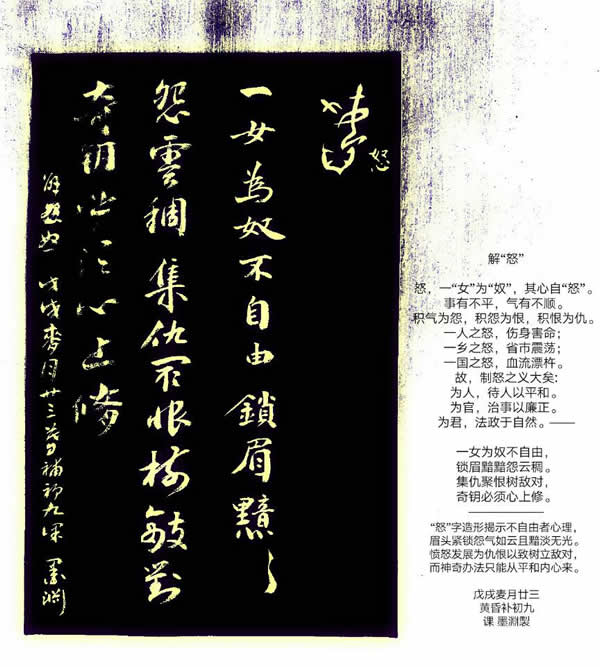 怒
一女為奴不自由 鎖眉黯〻
怨雲稠 集仇冣恨樹敵對
奇钥必须心上修
戊戌麥月廿三黄昏補初九课 墨渊
解“怒”
怒，一“女”为“奴”，其心自“怒”。
事有不平，气有不顺。
积气为怨，积怨为恨，积恨为仇。
一人之怒，伤身害命；
一乡之怒，省市震荡；
一国之怒，血流漂杵。
故，制怒之义大矣：
为人，待人以平和。
为官，治事以廉正。
为君，法政于自然。——
一女为奴不自由，
锁眉黯黯怨云稠。
集仇聚恨树敌对，
奇钥必须心上修。
“怒”字造形揭示不自由者心理，
眉头紧锁怨气如云且黯淡无光。
愤怒发展为仇恨以致树立敌对，
而神奇办法只能从平和内心来。
戊戌麦月廿三
黄昏补初九
课 墨渊製